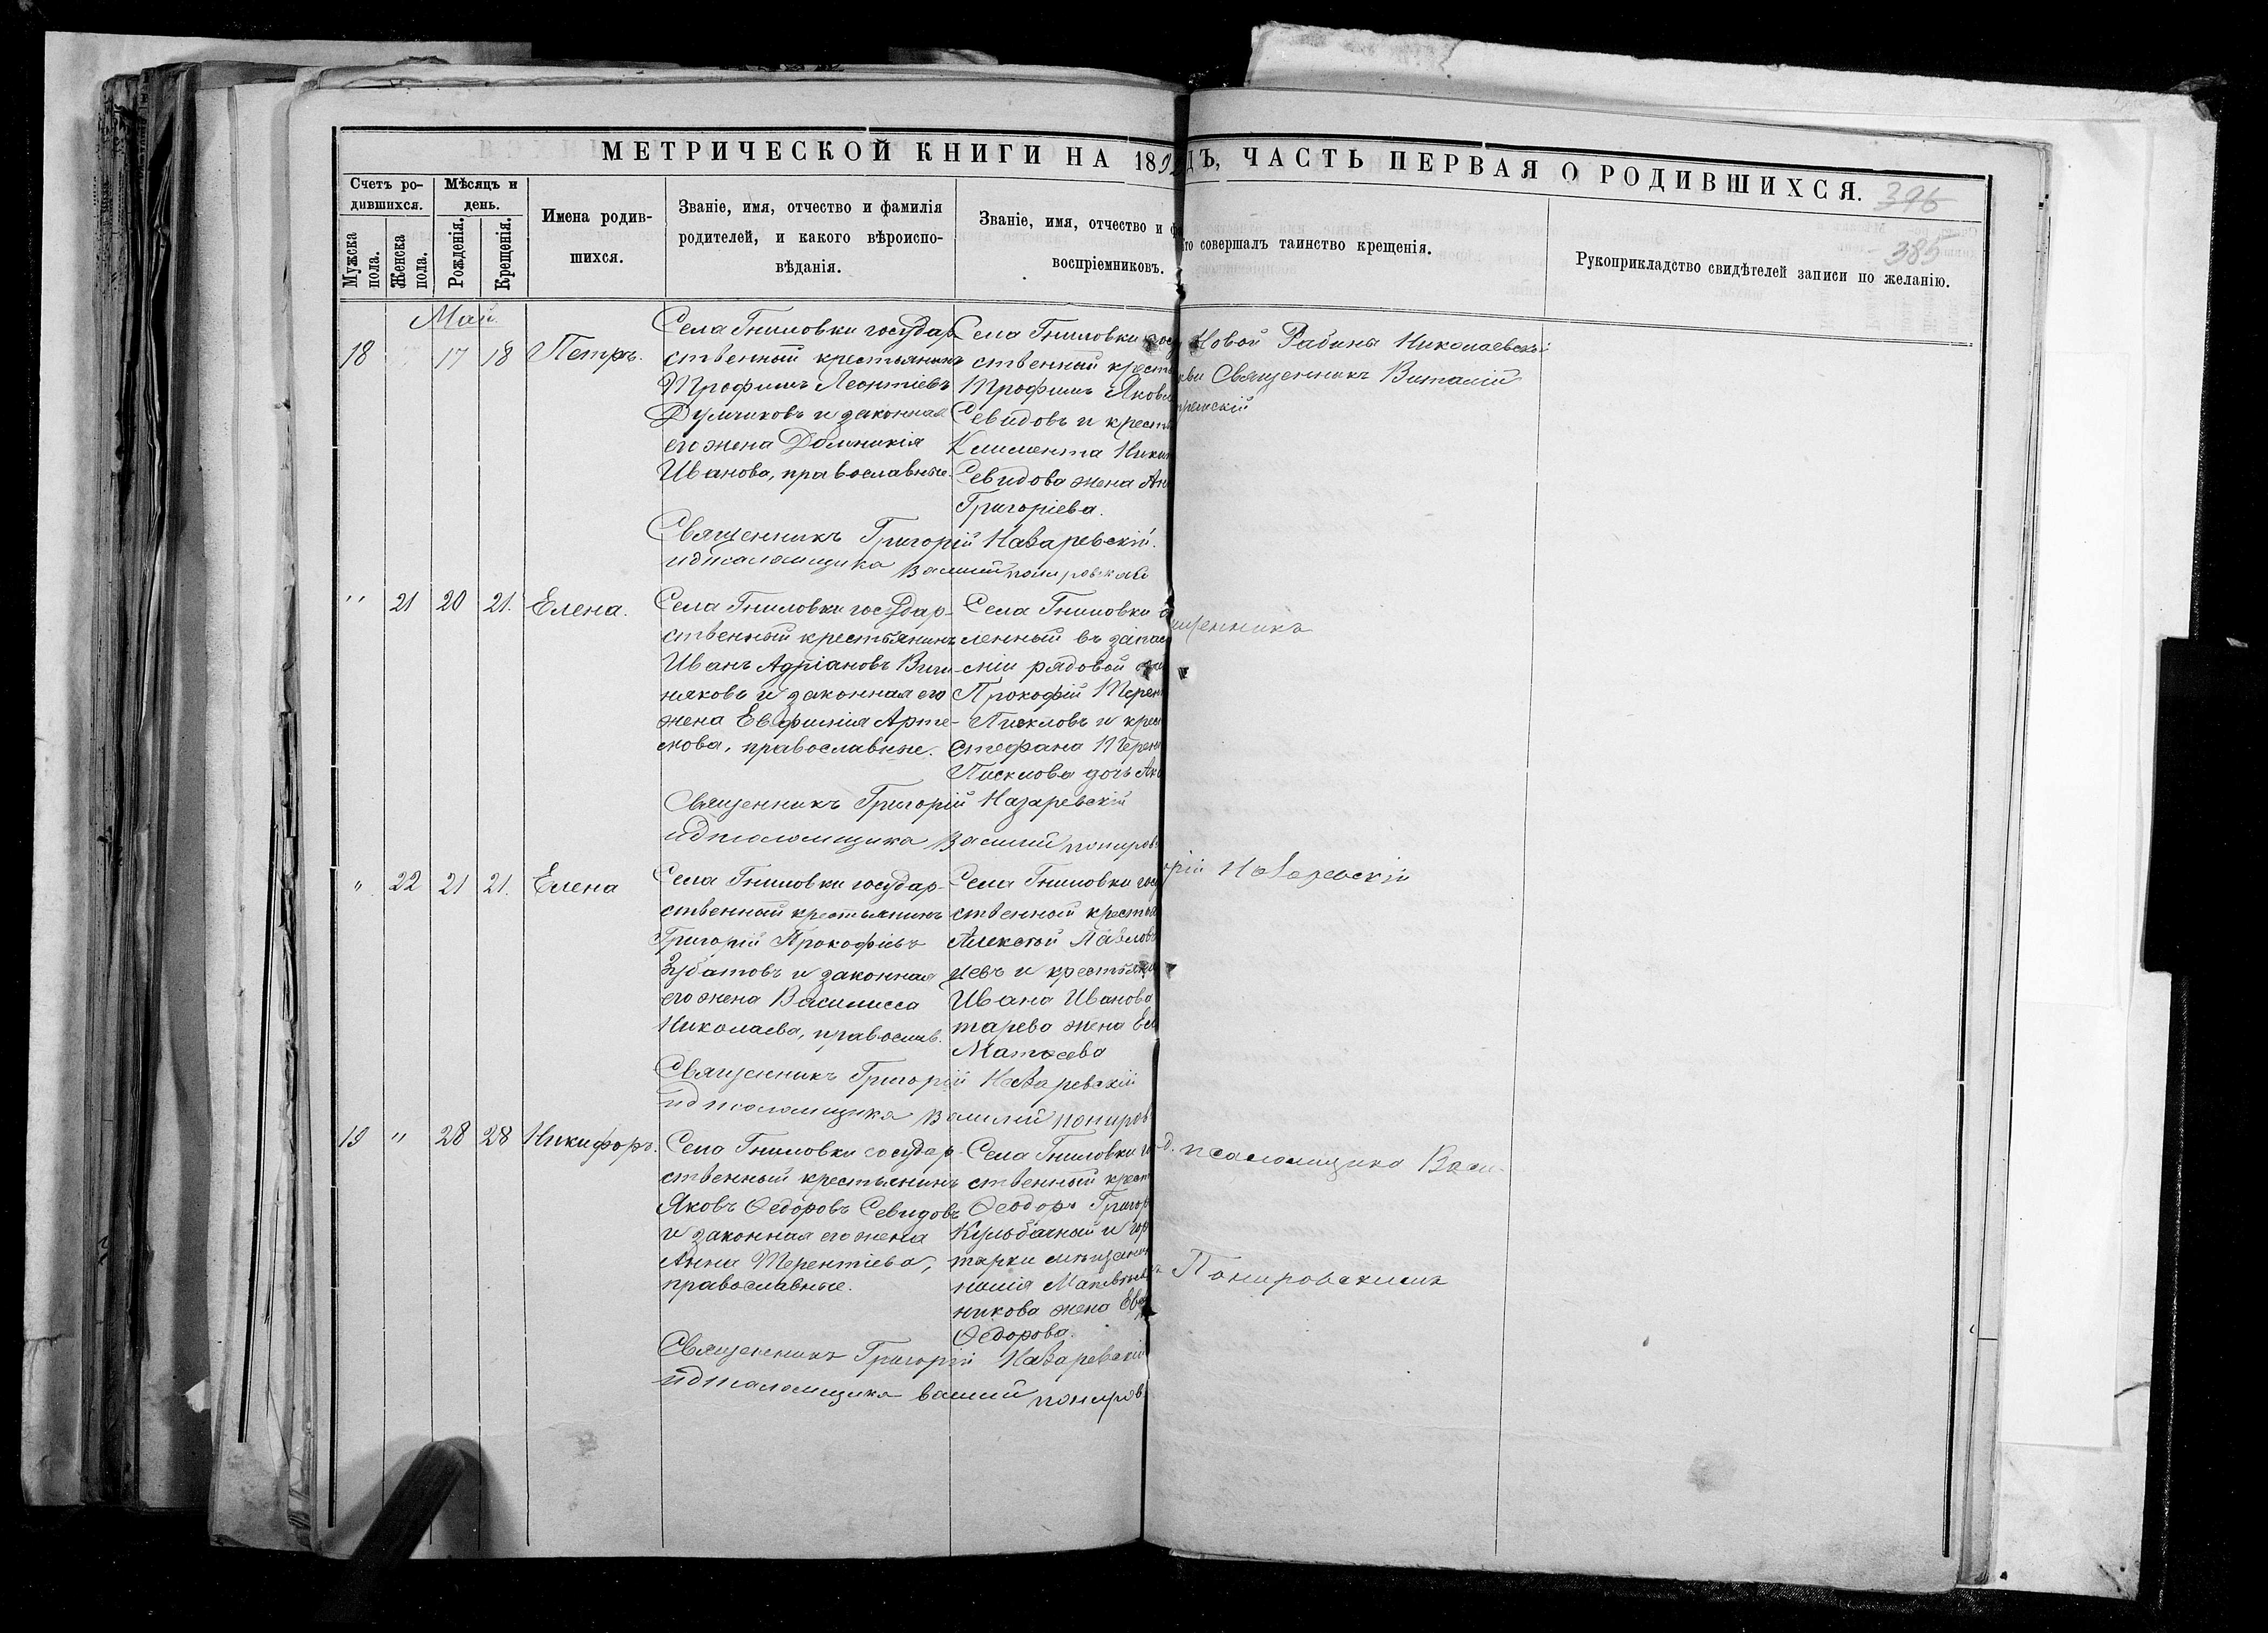 МЕТРИЧЕСКОЙ КНИГИ НА 189 ДЪ, ЧАСТЬ ПЕРВАЯ О РОДИВШИХСЯ.
396
385
Счетъ ро-
дившихся.
Мѣсяцъ и
день.
Мужска
пола.
Женска
пола.
Рожденія.
Крещенія.
Имена родив-
шихся.
Званіе, имя, отчество и фамилія
родителей, и какого вѣроиспо-
вѣданія.
Званіе, имя, отчество и
воспріемниковъ.
то совершалъ таинство крещенія.
Рукоприкладство свидѣтелей записи по желанію.
Май.
18 17 18 Петръ.
Села Гниловки государ-
ственный крестьянинъ
Трофимъ Леонтіевъ
и законная
его жена Домникія
Иванова, православные.
Села Гниловки
ственный кресть
Трофимъ Яков
Севидовъ и крест
Климента Ники
Севидова жена Ан
Григоріева.
Новой Рабины Николаевской
кви Священникъ Виталій
Священникъ Григорій Назаревскій.
ид псаломщика Василий
" 21 20 21. Елена.
Села Гниловки государ-
ственный крестьянинъ
Иванъ Адріановъ
няковъ и законная его
жена Евфимія Арте-
мова, православные.
Села Гниловки
ленный въ запас
рядовой
Прокофій Терен
и крес
Стефана Терен
Писклова дочь Ак
щенникъ
Священникъ Григорій Назаревскій
ид псаломщика Василий пониров
" 22 21 21. Елена
Села Гниловки государ-
ственный крестьянинъ
Григорій Прокофіевъ
Зубатовъ и законная
его жена Василисса
Николаева, православ.
Села Гниловки гос
ственной кресть
Алексѣй Павлов
цевъ и крестьян
Ивана Иванова
тарева жена Ел
Матѳеева
рій Назаревскій
Священникъ Григорій Назаревскій
ид псаломщика Василий пониров
19 " 28 28 Никифоръ.
Села Гниловки государ-
ственный крестьянинъ
Яковъ Ѳедоровъ Севидовъ
и законная его жена
Анна Терентіева,
православные.
Села Гниловки го
ственный крест
Ѳеодоръ Григор
Кульбачный и
тарки мѣщанин
никова жена Ев
Ѳедорова.
д. псаломщика Васи-
Понировскимъ
Священникъ Григорій Назаревскій
ид псаломщика василий пониров